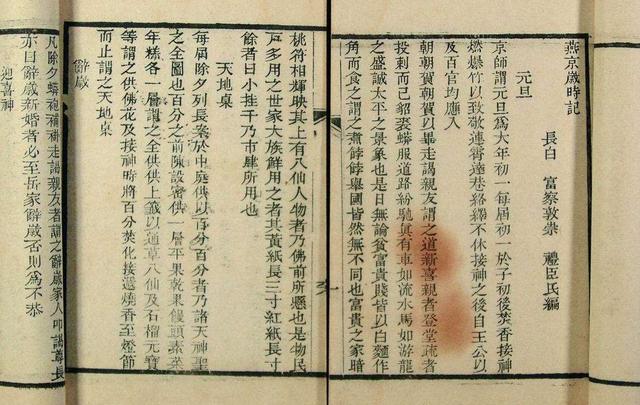 燕京歲時記
長白 富察敦崇 禮臣氏編
元旦
京師謂元旦爲大年初一每屆初一於子初後焚香接神
燃爆竹以致敬連霄達巷絡繹不休接神之後自王公以
及百官均應入
朝朝賀朝賀以畢走謁親友謂之道新喜親者登堂疏者
投刺而已貂裘蟒服道路紛馳眞有車如流水馬如游龍
之盛誠太平之景象也是日無論貧富貴賤皆以白麵作
角而食之謂之煮餑餑舉國皆然無不同也富貴之家暗
桃符相輝映其上有八仙人物者乃佛前所懸也是物民
戶多用之世家大族鮮用之者其黃紙長三寸紅紙長寸
餘者曰小挂千乃市肆所用也
天地桌
每屆除夕列長案於中庭供以百分百分者乃諸天神聖
之全圖也百分之前陳設蜜供一層平果乾果饅頭素菜
年糕各一層謂之全供供上籤以通草八仙及石榴元寶
等謂之供佛花及接神時將百分焚化接遞燒香至燈節
而止謂之天地桌
辭歲
凡除夕蟒袍補褂走謁親友者謂之辭歲家人叩謁尊長
亦曰辭歲新婚者必至岳家辭歲否則爲不恭
迎喜神